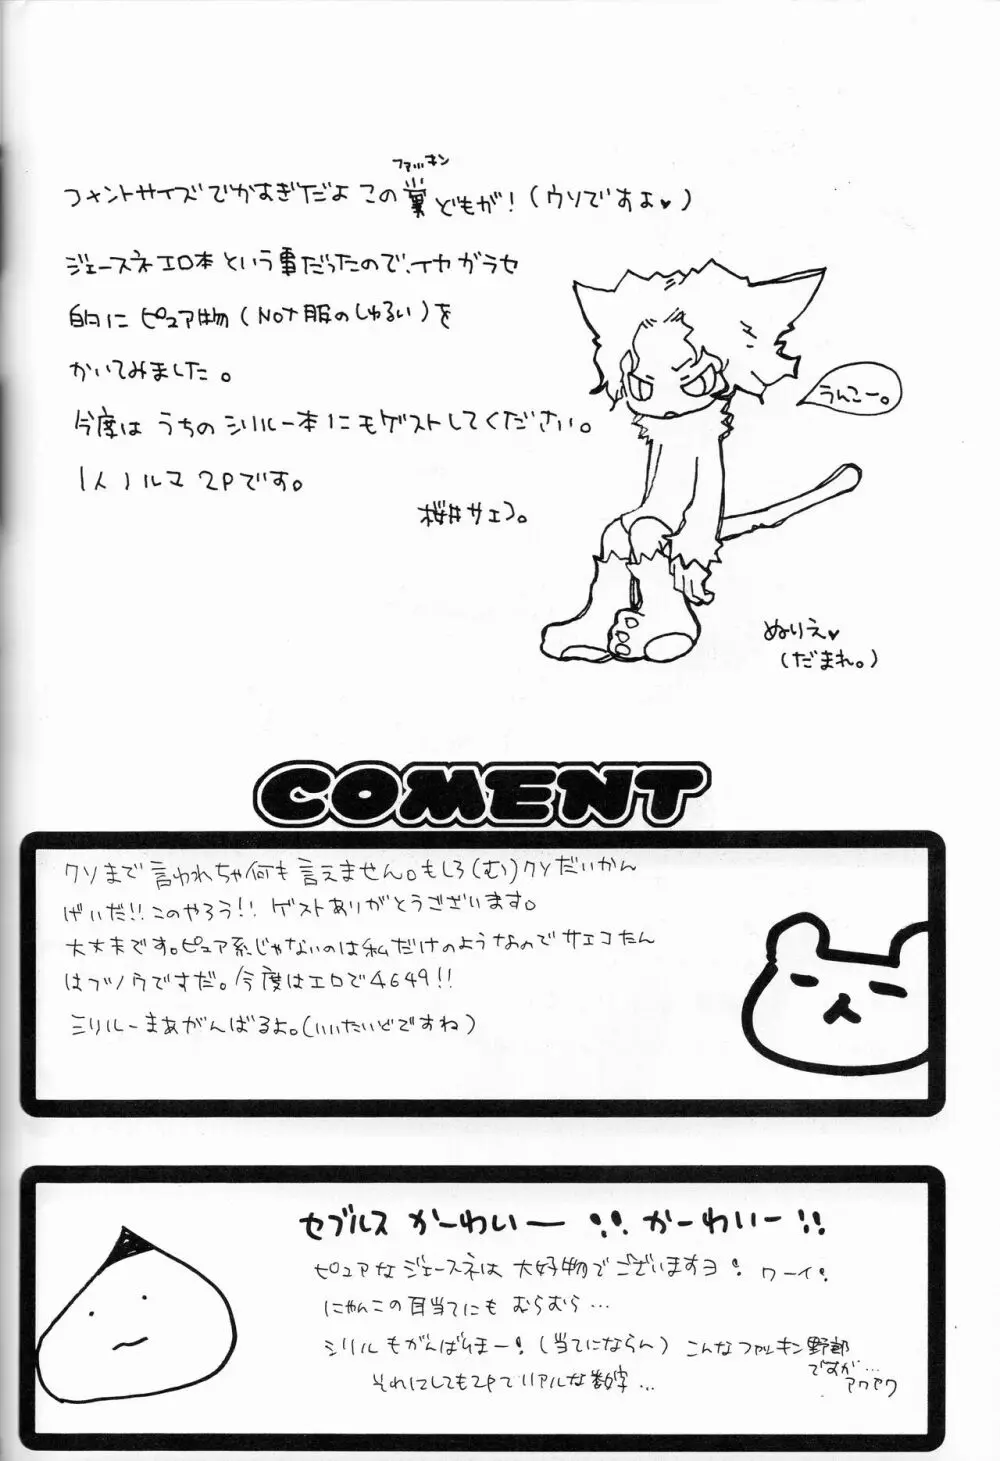 ファッキン
フォントサイズでかすぎだよ この 糞 どもが！(ウソですよ♥)
ジェースネエロ本という事だったので、イヤガラセ
的に ピュア物(NOT服のしゅるい)を
かいてみました。
今度は うちの シリルー本にもゲストしてください。
1人ノルマ 2Pです。
桜井サエコ。
うんこー。
ぬりえ♥
(だまれ。)
COMENT
クソまで言われちゃ何も言えません。もしろ(む)クソだいかん
げいだ!!このやろう!! ゲストありがとうございます。
大丈夫です。ピュア系じゃないのは私だけのようなのでサエコたん
はブノウですだ。今度はエロで4649!!
シリルーまあがんばるよ。(いいたいどですね)
セブルス かーわいー !! かーわいー !!
ピュアなジェースネは 大好物でございますヨ! ワーイ!
にゃんこの耳当てにも むらむら…
シリルもがんばりまー!(当てにならん) こんなファッキン野郎
ですが…
アワアワ
それにしても2Pてリアルな数字…